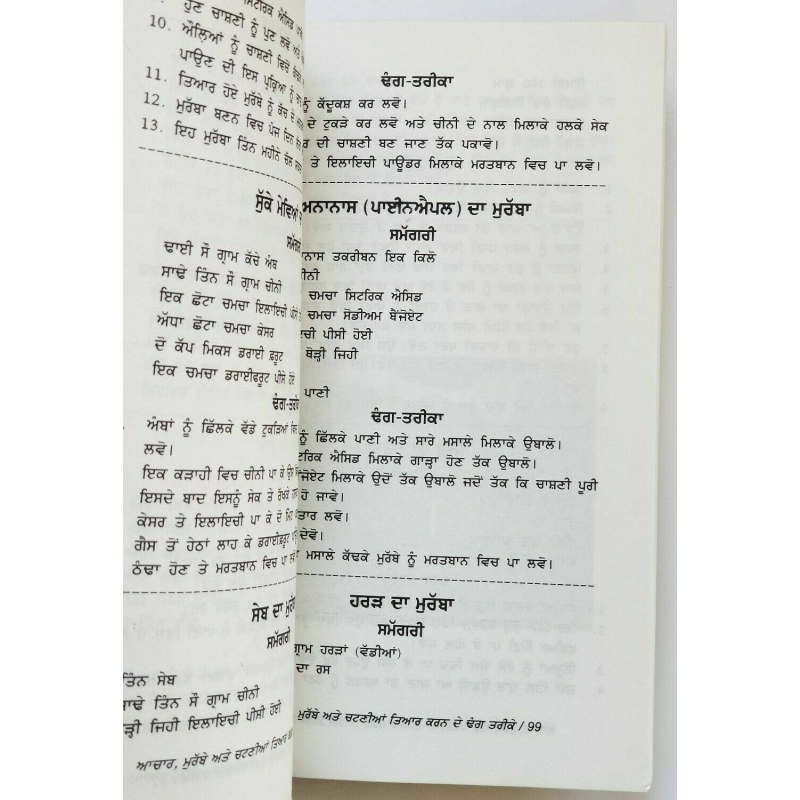 ਸਿਟਰਿਕ ਐਸਿਡ
ਹੁਣ ਚਾਸ਼ਣੀ ਨੂੰ ਪੁਣ ਲਵੋ ਅਤੇ
10. ਔਲਿਆਂ ਨੂੰ ਚਾਸ਼ਣੀ ਵਿਚੋਂ
ਪਾਉਣ ਦੀ ਇਸ ਪ੍ਰਕ੍ਰਿਆ ਨੂੰ
11. ਤਿਆਰ ਹੋਏ ਮੁਰੱਬੇ ਨੂੰ ਕੱਚ ਦੇ
12. ਮੁਰੱਬਾ ਬਣਨ ਵਿਚ ਪੰਜ ਦਿਨ
13. ਇਹ ਮੁਰੱਬਾ ਤਿੰਨ ਮਹੀਨੇ ਚੱਲ
ਸੁੱਕੇ ਮੇਵਿਆਂ
ਸਮੱਗਰੀ
ਢਾਈ ਸੌ ਗ੍ਰਾਮ ਕੱਚੇ ਅੰਬ
ਸਾਢੇ ਤਿੰਨ ਸੌ ਗ੍ਰਾਮ ਚੀਨੀ
ਇਕ ਛੋਟਾ ਚਮਚਾ ਇਲਾਇਚੀ ਪੀਸੀ
ਅੱਧਾ ਛੋਟਾ ਚਮਚਾ ਕੇਸਰ
ਦੋ ਕੱਪ ਮਿਕਸ ਡਰਾਈ ਫ਼ਰੂਟ
ਇਕ ਚਮਚਾ ਡਰਾਈਫਰੂਟ ਪੀਸੇ ਹੋਏ
ਢੰਗ-ਤਰੀਕਾ
ਅੰਬਾਂ ਨੂੰ ਛਿੱਲਕੇ ਵੱਡੇ ਟੁਕੜਿਆਂ ਵਿਚ
ਲਵੋ।
ਇਕ ਕੜਾਹੀ ਵਿਚ ਚੀਨੀ ਪਾ ਕੇ
ਇਸਦੇ ਬਾਦ ਇਸਨੂੰ ਸੇਕ ਤੇ ਰੱਖਕੇ
ਕੇਸਰ ਤੇ ਇਲਾਇਚੀ ਪਾ ਕੇ ਦੋ ਮਿੰਟ
ਗੈਸ ਤੋਂ ਹੇਠਾਂ ਲਾਹ ਕੇ ਡਰਾਈਫਰੂਟ
ਠੰਢਾ ਹੋਣ ਤੇ ਮਰਤਬਾਨ ਵਿਚ ਪਾ
ਸੇਬ ਦਾ ਮੁਰੱਬਾ
ਸਮੱਗਰੀ
ਤਿੰਨ ਸੇਬ
ਸਾਢੇ ਤਿੰਨ ਸੌ ਗ੍ਰਾਮ ਚੀਨੀ
ਜਿਹੀ ਇਲਾਇਚੀ ਪੀਸੀ ਹੋਈ
ਆਚਾਰ, ਮੁਰੱਬੇ ਅਤੇ ਚਟਣੀਆਂ ਤਿਆਰ
ਢੰਗ-ਤਰੀਕਾ
ਨੂੰ ਕੱਦੂਕਸ਼ ਕਰ ਲਵੋ।
ਦੇ ਟੁਕੜੇ ਕਰ ਲਵੋ ਅਤੇ ਚੀਨੀ ਦੇ ਨਾਲ ਮਿਲਾਕੇ ਹਲਕੇ ਸੇਕ
ਦੀ ਚਾਸ਼ਣੀ ਬਣ ਜਾਣ ਤੱਕ ਪਕਾਵੋ।
ਤੇ ਇਲਾਇਚੀ ਪਾਊਡਰ ਮਿਲਾਕੇ ਮਰਤਬਾਨ ਵਿਚ ਪਾ ਲਵੋ।
ਅਨਾਨਾਸ (ਪਾਈਨਐਪਲ) ਦਾ ਮੁਰੱਬਾ
ਸਮੱਗਰੀ
ਨਾਸ ਤਕਰੀਬਨ ਇਕ ਕਿਲੋ
ਚੀਨੀ
ਚਮਚਾ ਸਿਟਰਿਕ ਐਸਿਡ
ਚਮਚਾ ਸੋਡੀਅਮ ਬੈਂਜੋਏਟ
ਚੀ ਪੀਸੀ ਹੋਈ
ਥੋੜ੍ਹੀ ਜਿਹੀ
ਪਾਣੀ
ਢੰਗ-ਤਰੀਕਾ
ਨੂੰ ਛਿੱਲਕੇ ਪਾਣੀ ਅਤੇ ਸਾਰੇ ਮਸਾਲੇ ਮਿਲਾਕੇ ਉਬਾਲੋ।
ਟਰਿਕ ਐਸਿਡ ਮਿਲਾਕੇ ਗਾੜ੍ਹਾ ਹੋਣ ਤੱਕ ਉਬਾਲੋ।
ਜੋਏਟ ਮਿਲਾਕੇ ਉਦੋਂ ਤੱਕ ਉਬਾਲੋ ਜਦੋਂ ਤੱਕ ਕਿ ਚਾਸ਼ਣੀ ਪੂਰੀ
ਹੋ ਜਾਵੇ।
ਤਾਰ ਲਵੋ।
ਦੇਵੋ।
ਮਸਾਲੇ ਕੱਢਕੇ ਮੁਰੱਬੇ ਨੂੰ ਮਰਤਬਾਨ ਵਿਚ ਪਾ ਲਵੋ।
ਹਰੜ ਦਾ ਮੁਰੱਬਾ
ਸਮੱਗਰੀ
ਗ੍ਰਾਮ ਹਰੜਾਂ (ਵੱਡੀਆਂ)
ਦਾ ਰਸ
ਮੁਰੱਬੇ ਅਤੇ ਚਟਣੀਆਂ ਤਿਆਰ ਕਰਨ ਦੇ ਢੰਗ ਤਰੀਕੇ / 99